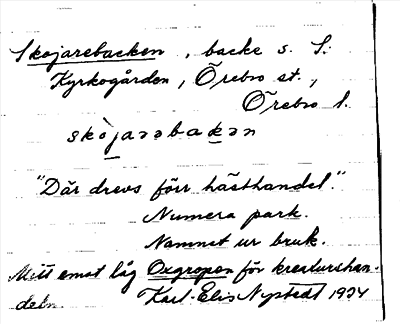 Skojarebacken, backe s. S:
Kyrkogården, Örebro st.,
Örebro l.
skòjarəbakən
"Där drevs förr hästhandel."
Numera park.
Namnet ur bruk.
Mitt emot låg Oxgropen för kreaturshan-
deln Karl-Elis Nystedt 1934